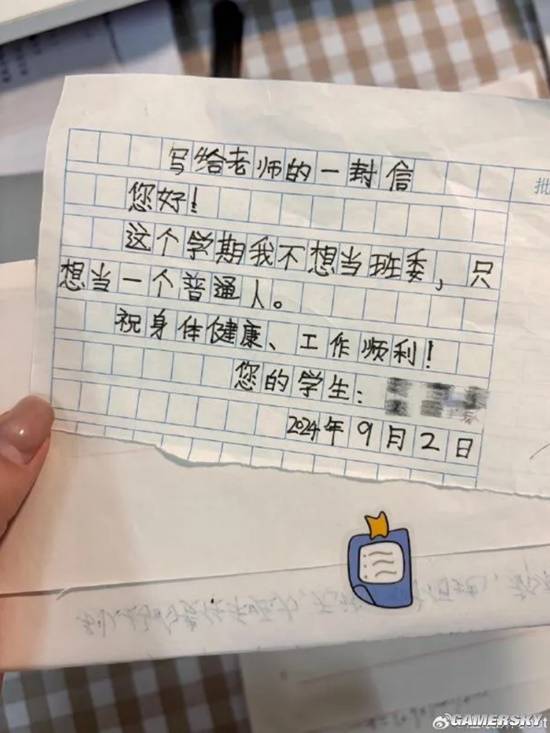 写给老师的一封信
批
您好!
这个学期我不想当班委,只
想当一个普通人。
祝身体健康、工作顺利!
您的学生:
2024年9月2日
GAMERSKY